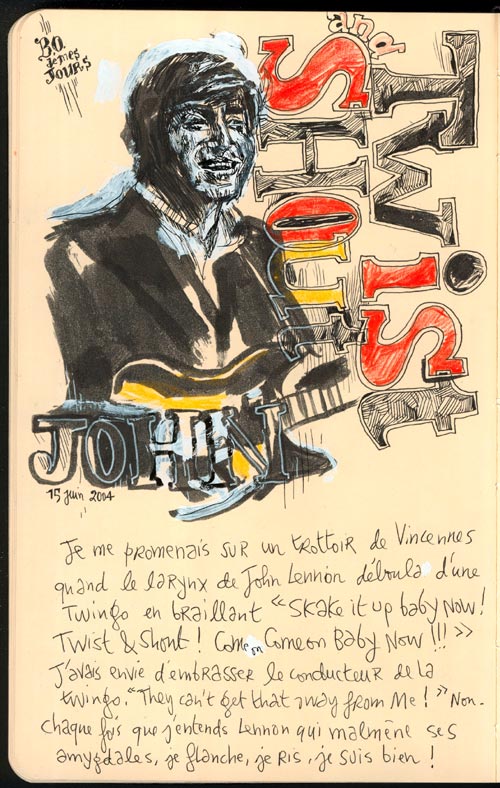 B.O.
de mes
JOURS
and
TWIST
SHOUT
JOHN
15 juin 2004
Je me promenais sur un trottoir de Vincennes
quand le larynx de John Lennon déboula d'une
Twingo en braillant "Skake it up baby Now!
Twist & Shout! Come on Come on Baby Now!!!"
J'avais envie d'embrasser le conducteur de la
twingo. "They can't get that away from Me!" Non.
chaque fois que j'entends Lennon qui malmène ses
amygdales, je flanche, je ris, je suis bien!